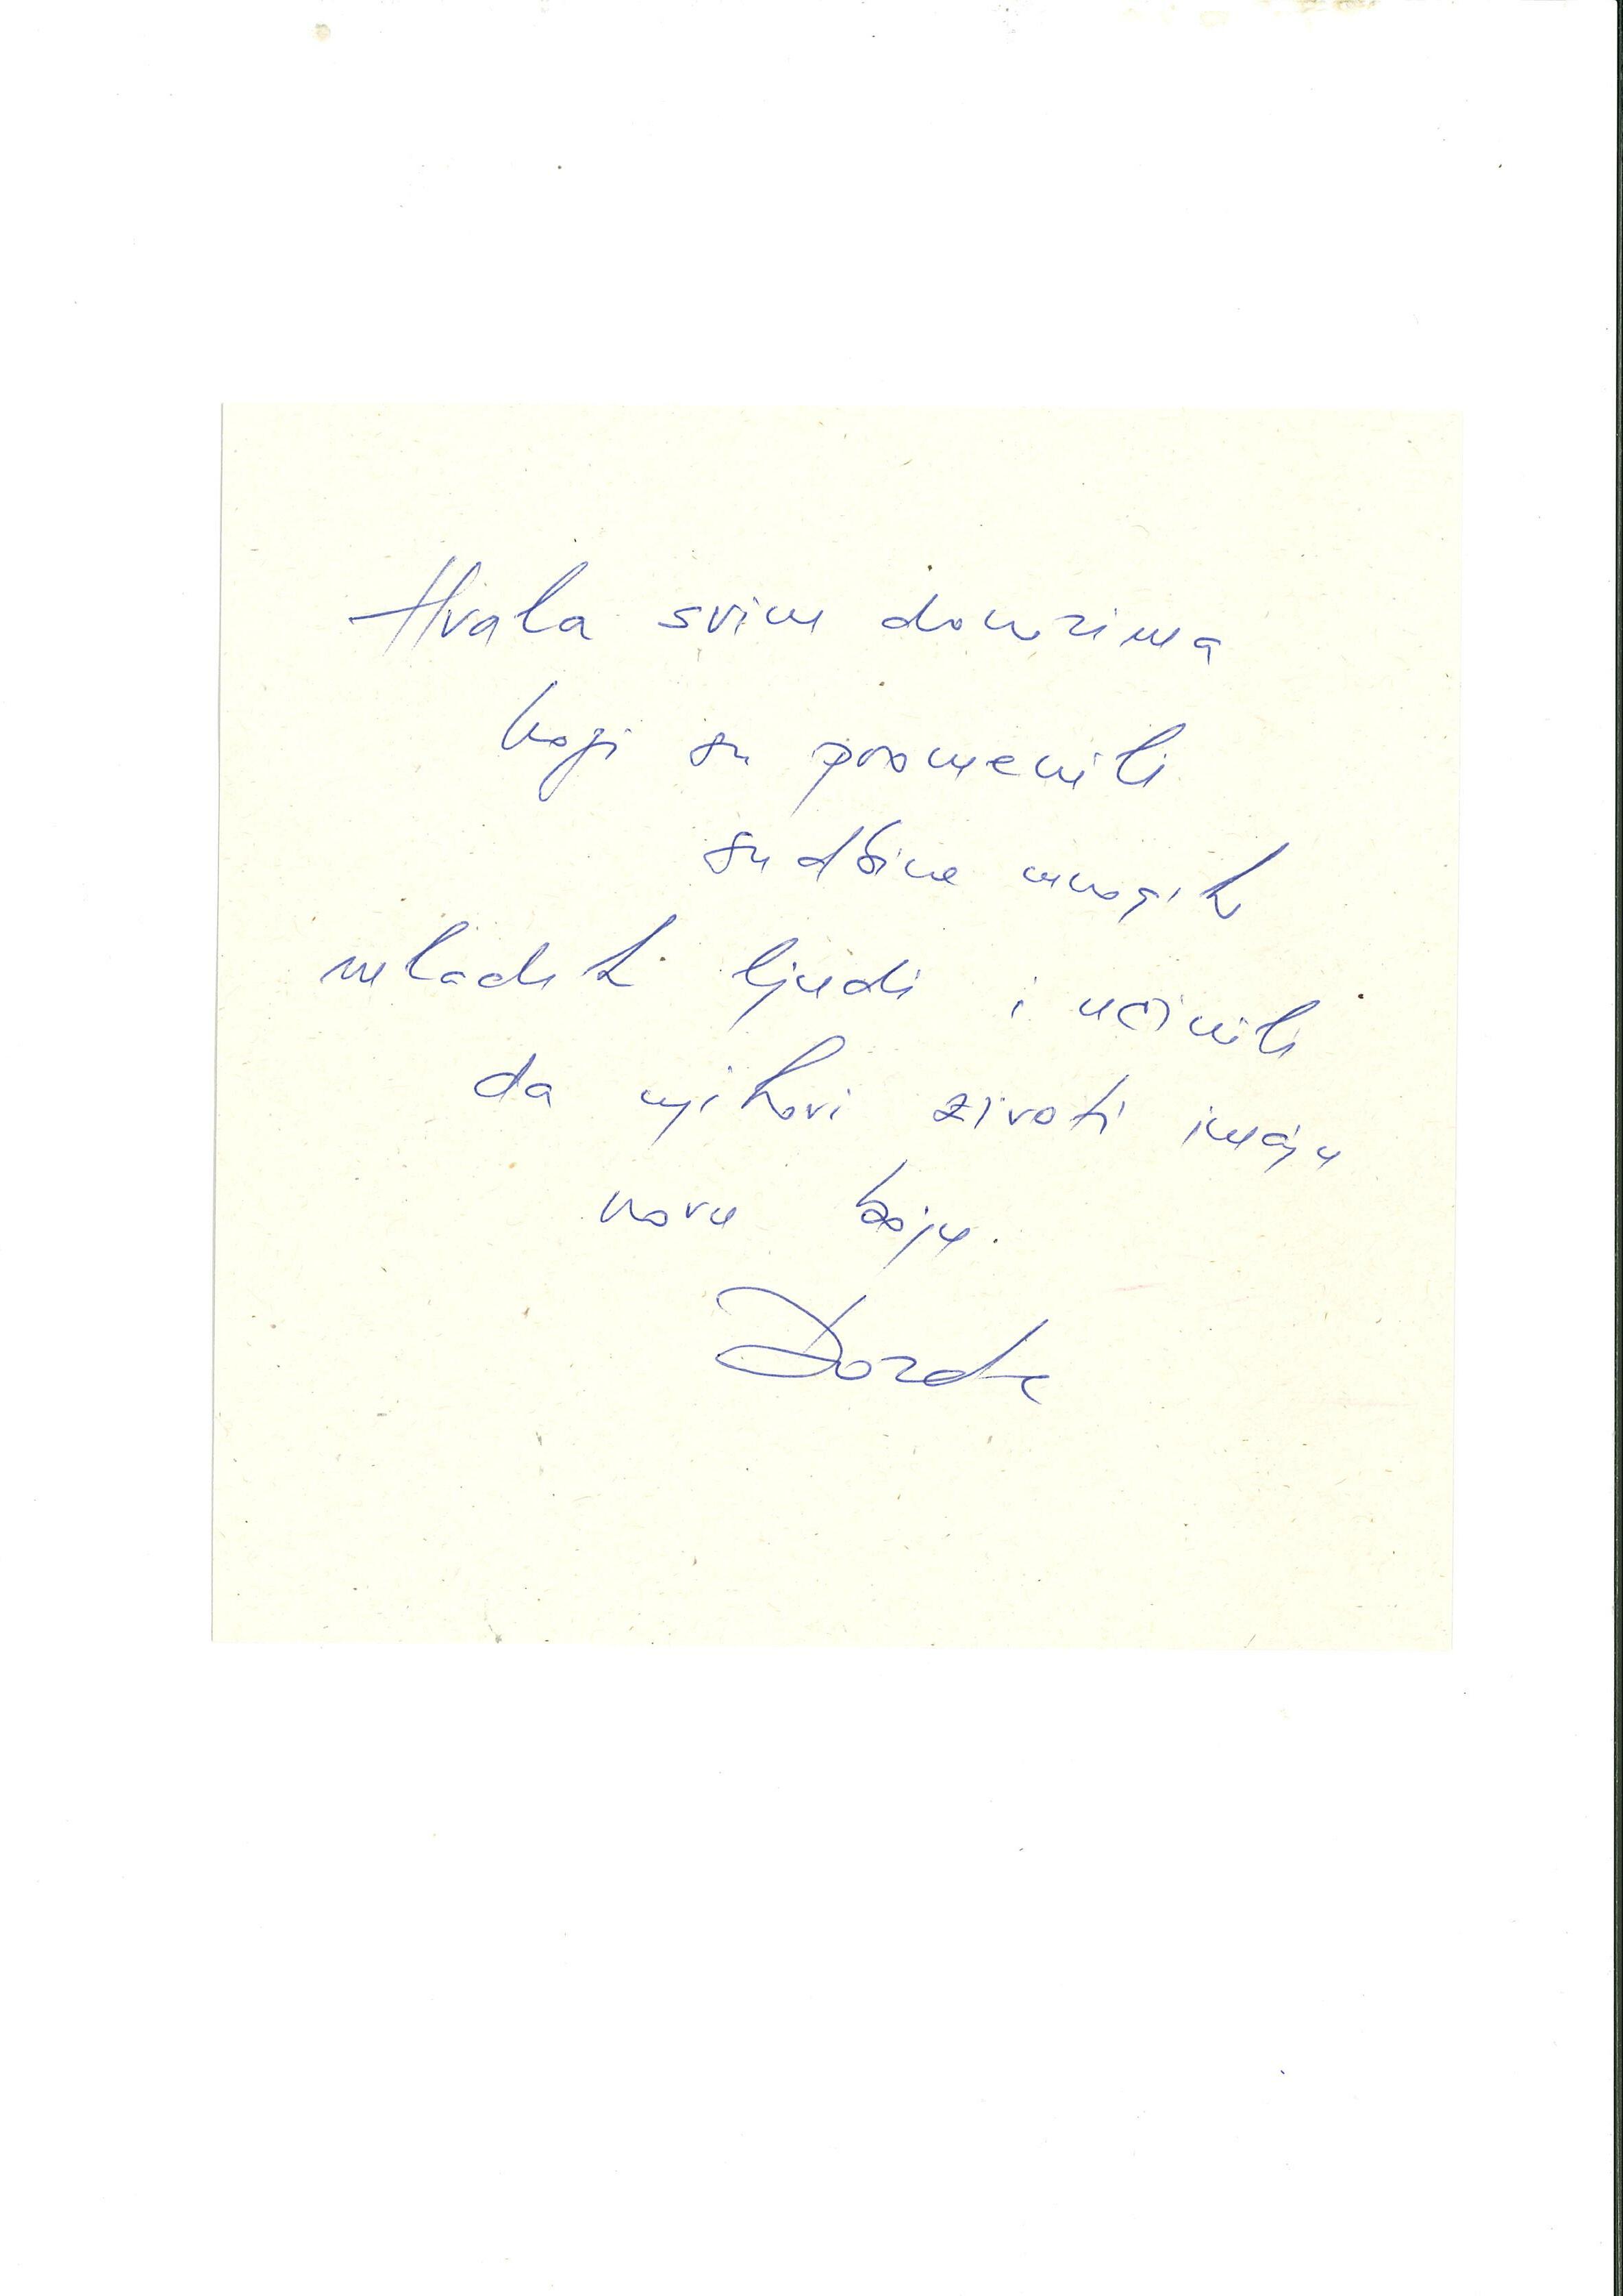 Hvala svim donorima
koji su promenili
sudbine mnogih
mladih ljudi i učinili
da njihovi zivoti imaju
novu boju.